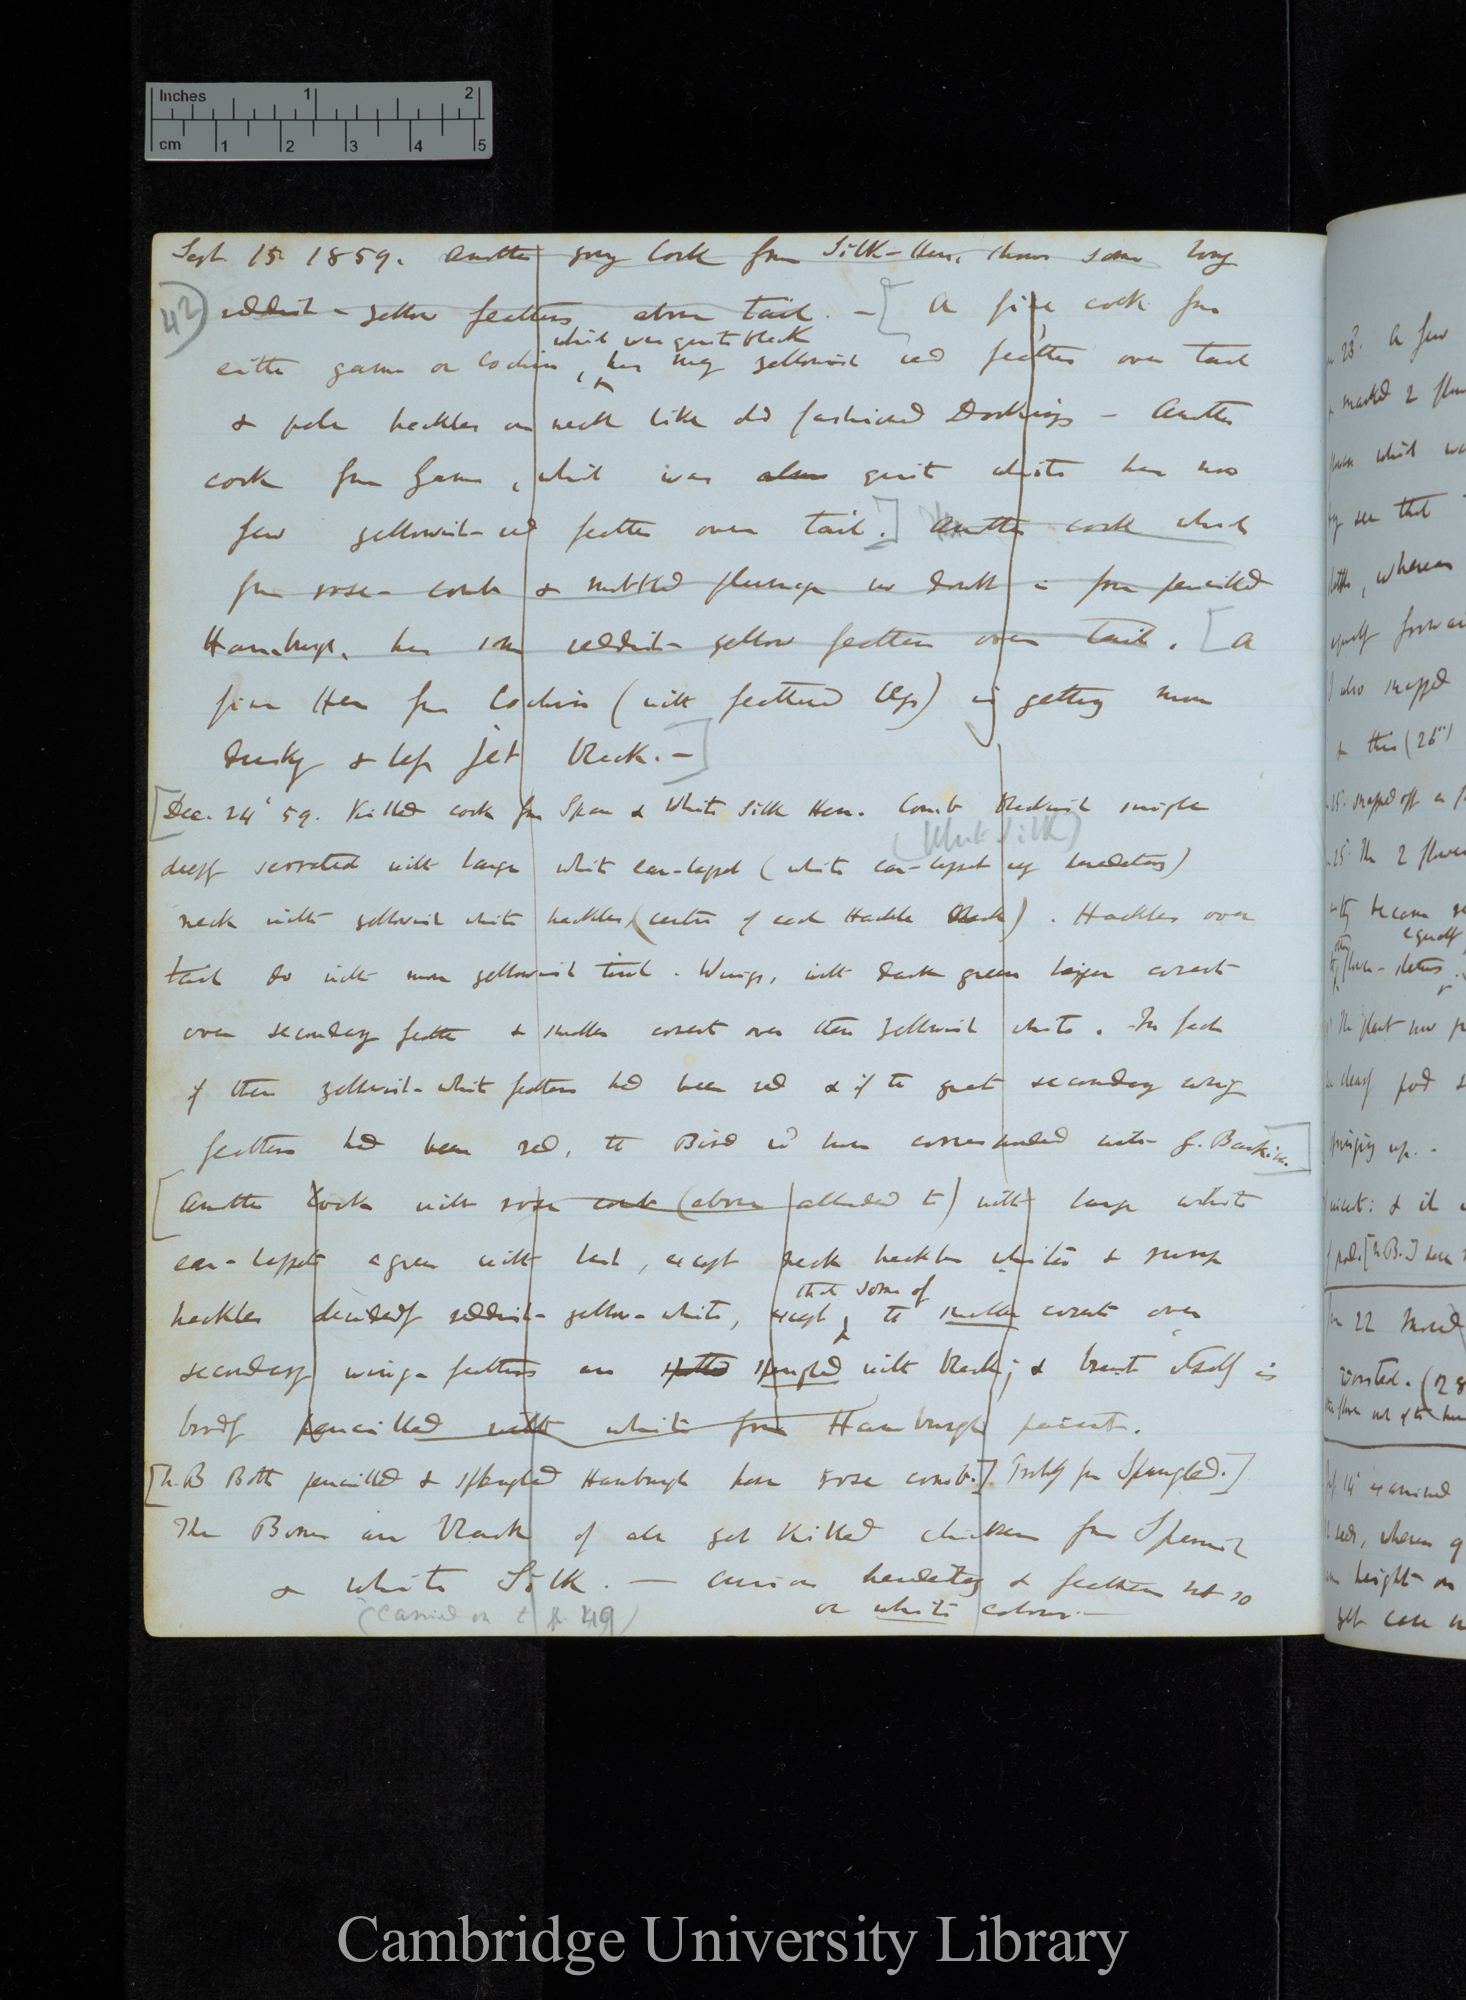 Inches 1 2
cm 1 2 3 4 5
Sept 15 1859. Another young Cock from Silk-Hen, shows some long
42
reddish-yellow feathers above tail. — [A fine cock from
which was quite black
either game or Cochin, has many yellowish red feathers over tail
& pale hackles on neck like old fashioned Dorkings — Another
cock from Game, which was also quite white has now
few yellowish-red feathers over tail.] Another cock which
from rose-comb & mottled plumage no doubt is from pencilled
Hamburgh, has some reddish-yellow feathers over tail. [A
fine Hen from Cochin (with feathered legs) is getting more
dusky & less jet black. —]
[Dec. 24 59. Killed cock from Span & White Silk Hen. Comb blackish single
(Black Silk)
deeply serrated with large white ear-lappet (white ear-lappet very hereditary)
neck with yellowish white hackles (centre of each Hackle black). Hackles over
tail do with more yellowish tint. Wings, with dark green larger coverts
over secondary feathers & smaller coverts over them yellowish white. In fact
if these yellowish-white feathers had been red & if the great secondary wing
feathers had been red, the Bird wd have corresponded with G. Bankiva.]
[Another Cock with rose comb (above alluded to) with large white
ear-lappets agrees with last, except neck hackles whiter & rump
hackles decidedly reddish-yellow-white, except
that some of
the smaller coverts over
secondary wing-feathers are spotted spangled with black; & breast itself is
broadly pencilled with white from Hamburgh parent.
[N.B Both pencilled & spangled Hamburgh have rose combs.] Probly from Spangled.]
The Bones are black of all yet killed chickens from Spanish
& White Silk. — Curious hereditary & feathers not so
or white colour. —
(Carried on to p. 49)
23. A few
marked 2
which
see that
, whereas
I also snapped
this (26
25. snapped off
25. The 2 flowers
become
equally
The plant now
pod
springing up. -
& it
[N.B. I have
22
worsted. (28
14 examined
, whereas
height
Cambridge University Library